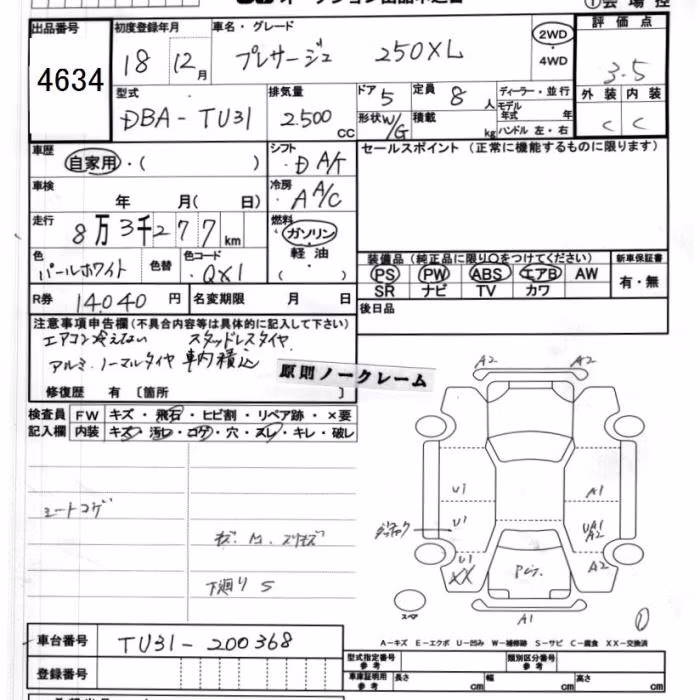 ①会場控
出品番号 4634
初度登録年月 18 12月
車名・グレード プレサージュ 250XL
2WD
・
4WD
評価点 3.5
外装 内装
C C
型式 DBA-TU31
排気量 2.500 CC
ドア 5
定員 8 人
ディーラー・並行
形状 W/G
積載 kg
モデル年式 年
ハンドル 左・右
車歴 自家用・( )
シフト ・D A/T
セールスポイント (正常に機能するものに限ります)
車検 年 月( 日)
冷房 A A/C
走行 8万3千277km
燃料 ガソリン
・
軽油
( )
色 パールホワイト 色替 色コード QX1
装備品 (純正品に限り○をつけてください) 新車保証書
PS PW ABS エアB AW 有・無
SR ナビ TV カワ
R券 14.040 円 名変期限 月 日
後日品
注意事項申告欄 (不具合内容等は具体的に記入して下さい)
エアコン冷えない スタッドレスタイヤ
アルミ、ノーマルタイヤ 車内積込
原則ノークレーム
修復歴 有 〔箇所
検査員 FW キズ・飛石・ヒビ割・リペア跡・×要
記入欄 内装 キズ・汚レ・コゲ・穴・スレ・キレ・破レ
A2 A2
U1 A1
シートコゲ
U1 UA1
A2
下廻り S
U1
XX A2
スペア
A1
①
A-キズ E-エクボ U-凹み W-補修跡 S-サビ C-腐食 XX-交換済
車台番号 TU31-200368
型式指定番号 参考 類別区分番号 参考
登録番号
車庫証明用 参考 長さ cm 幅 cm 高さ cm